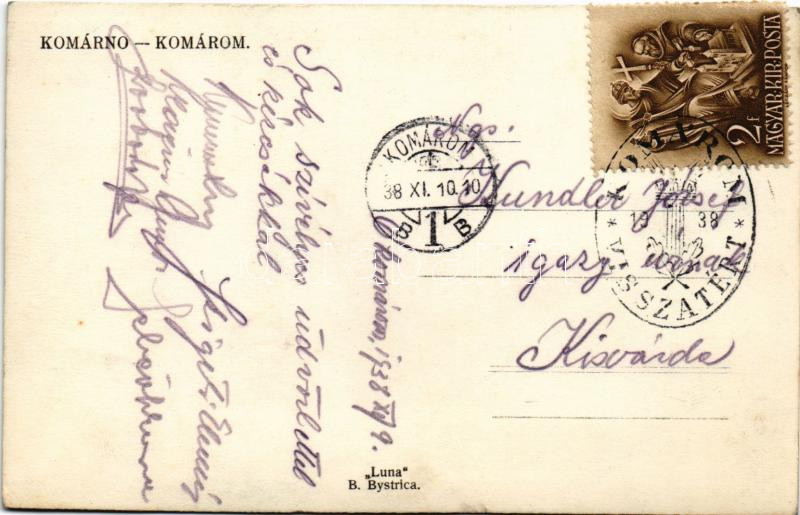 KOMÁRNO — KOMÁROM.
Sok szívélyes üdvözlettel
és kézcsókkal
Szigeti Elemér
Komárom, 1938 XI/9.
„Luna"
B. Bystrica.
KOMÁROM
1
38 XI. 10. 10
8 1 B
Ngs.
Kundler József
igazg. úrnak
Kisvárda
MAGYAR·KIR·POSTA
2 f
KOMÁROM
19 38
* VISSZATÉRT *